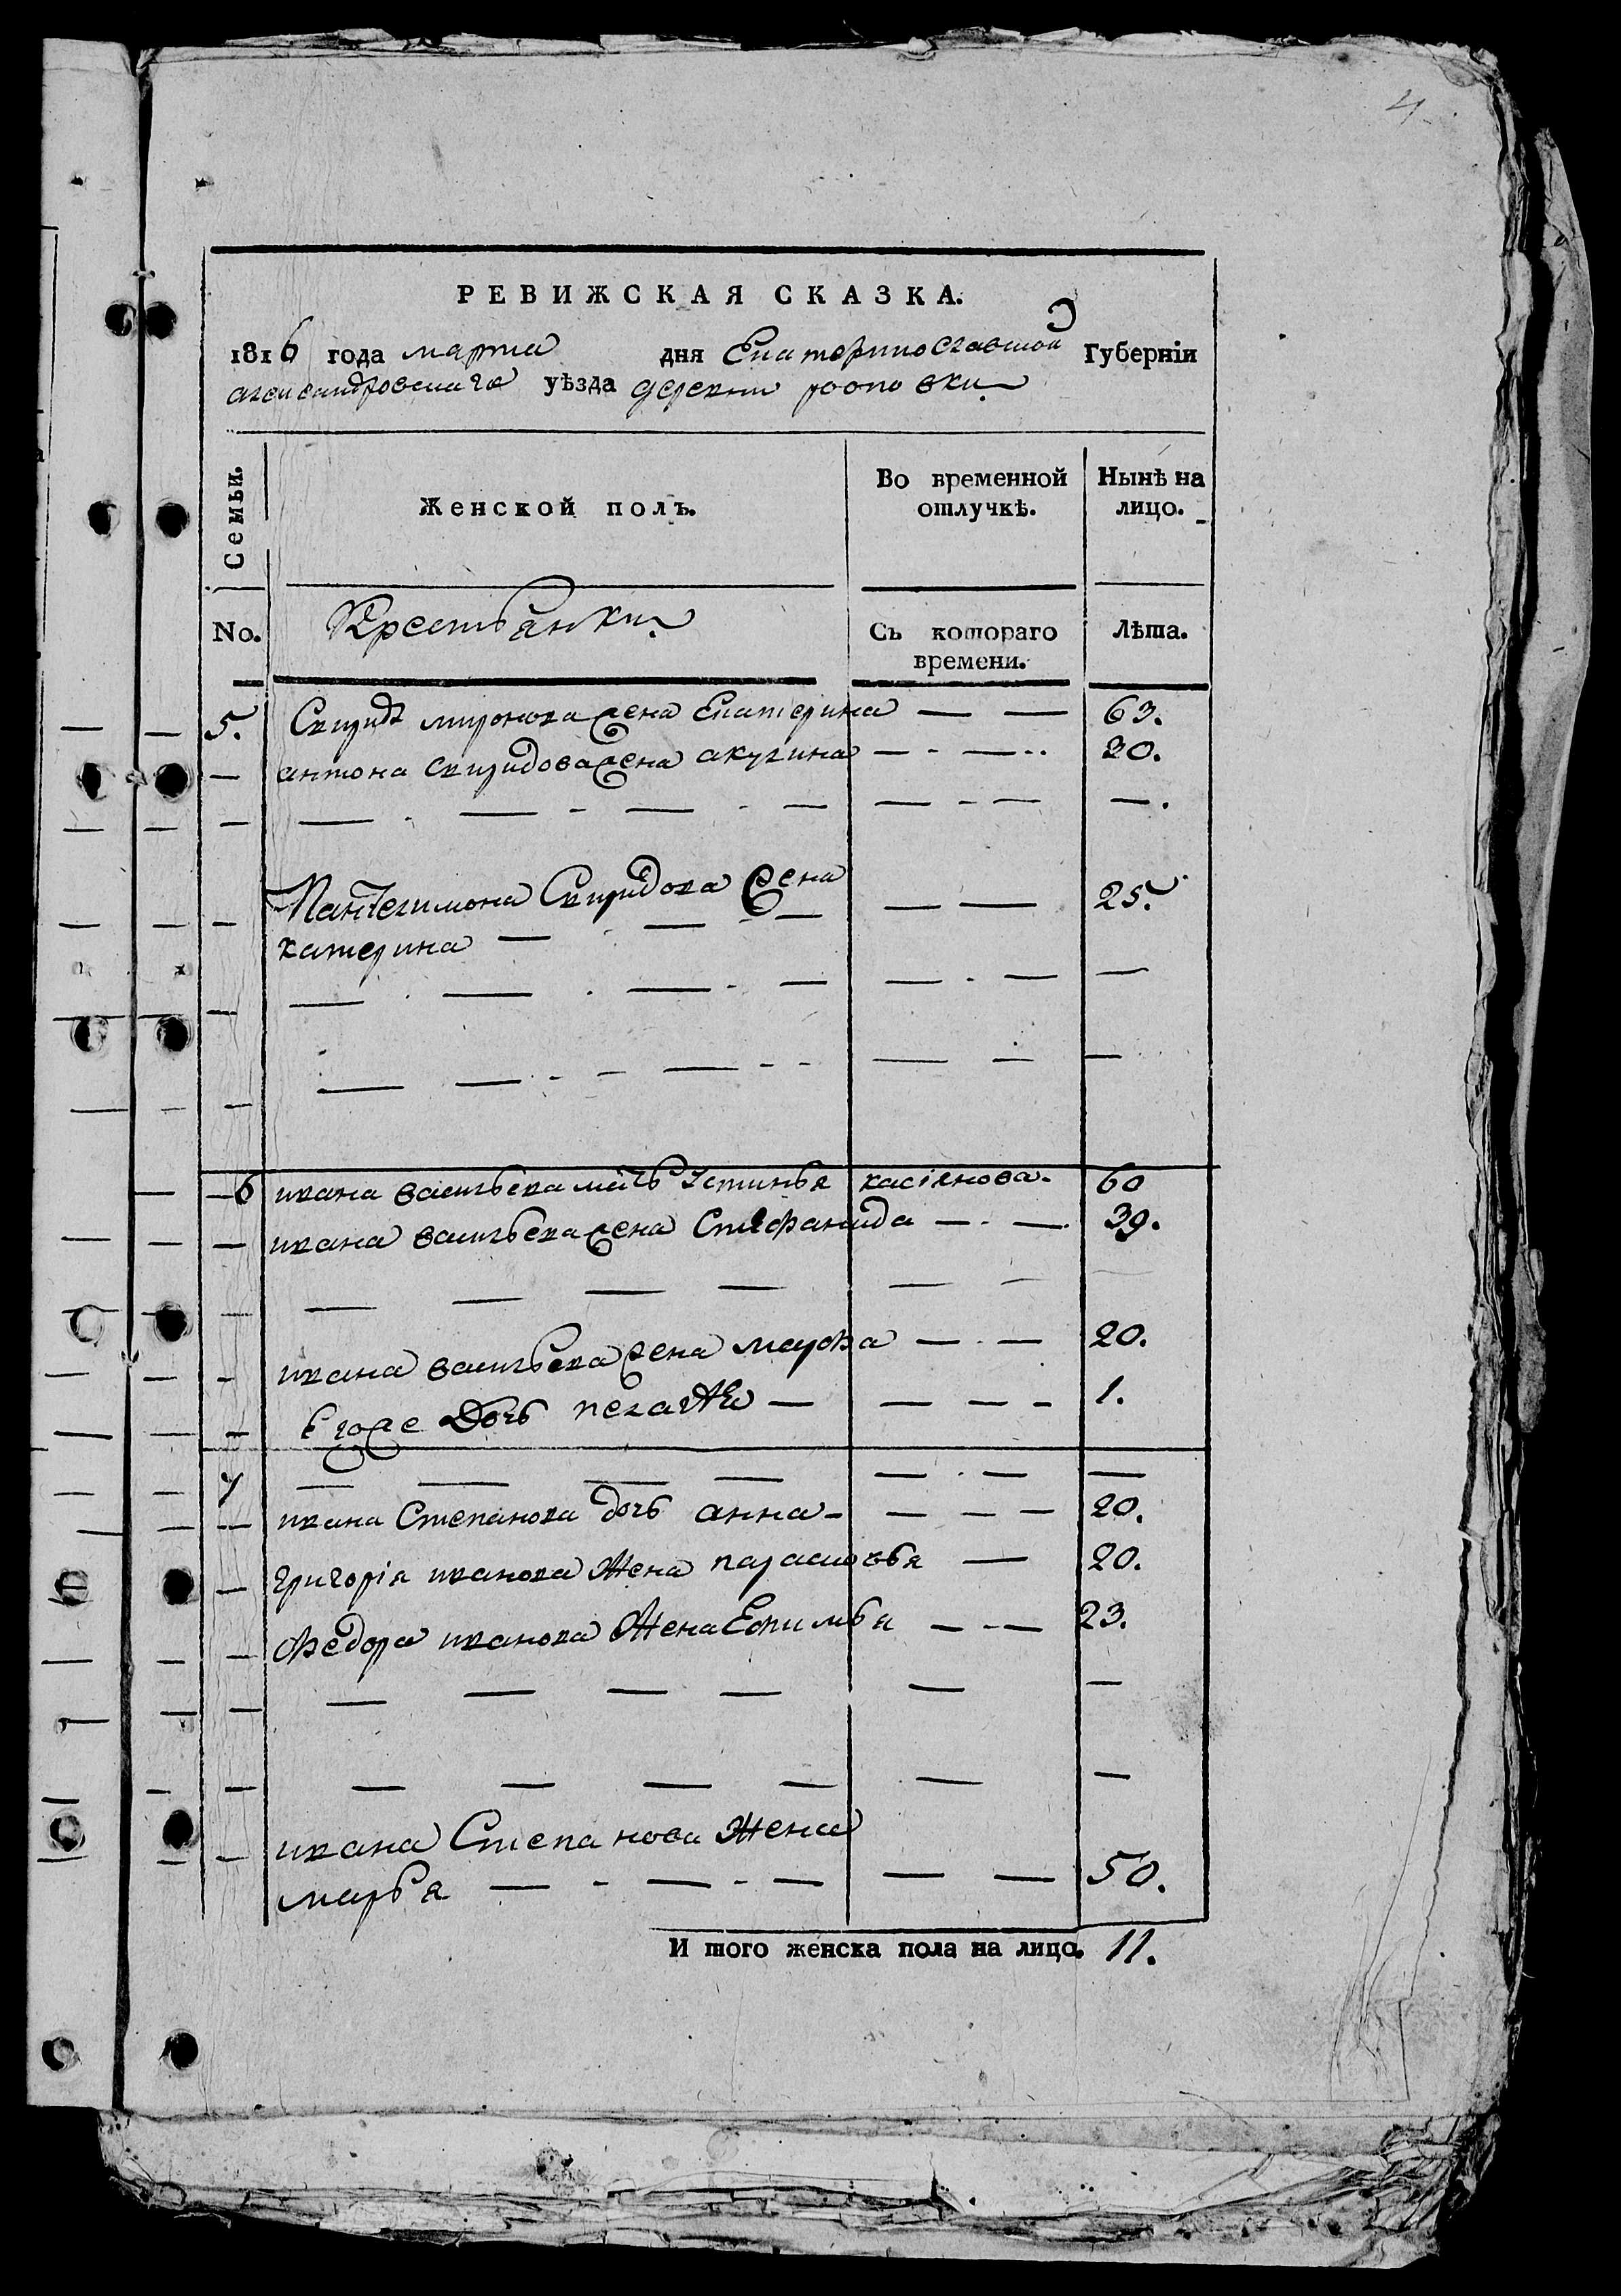 4
РЕВИЖСКАЯ СКАЗКА.
1816 года марта дня Екатеринославской Губерніи
александровскаго уѣзда деревни поповки
Семьи.
Женской полъ.
Во временной отлучкѣ.
Нынѣ на лицо.
No.
Крестьянки
Съ котораго времени.
Лѣта.
5. Свирида миронова жена Екатерина — — 63.
— антона свиридова жена акулина — - — 30.
— — - — - — - — — - — —.
— Пантелимона Свиридова жена — — 25.
катерина — - — - —
— — - — - — - — — - — —
— — — - - — - - — — —
6 ивана васильева мать Устинья касіянова. 60
— ивана васильева жена Стефанида — - — 39.
— — — — — — —
— ивана васильева жена марфа — - — 20.
— Его же Дочь пелагея — — — - 1.
7 — — — — — - — —
— ивана Степанова дочь анна - — — — 20.
— григорія иванова жена парасковья — 20.
— Федора иванова Жена Ефимья — - — 23.
— — — — — — —
— — — — — — —
— ивана Степанова Жена
марья — - — - — — — 50.
И того женска пола на лицо. 11.